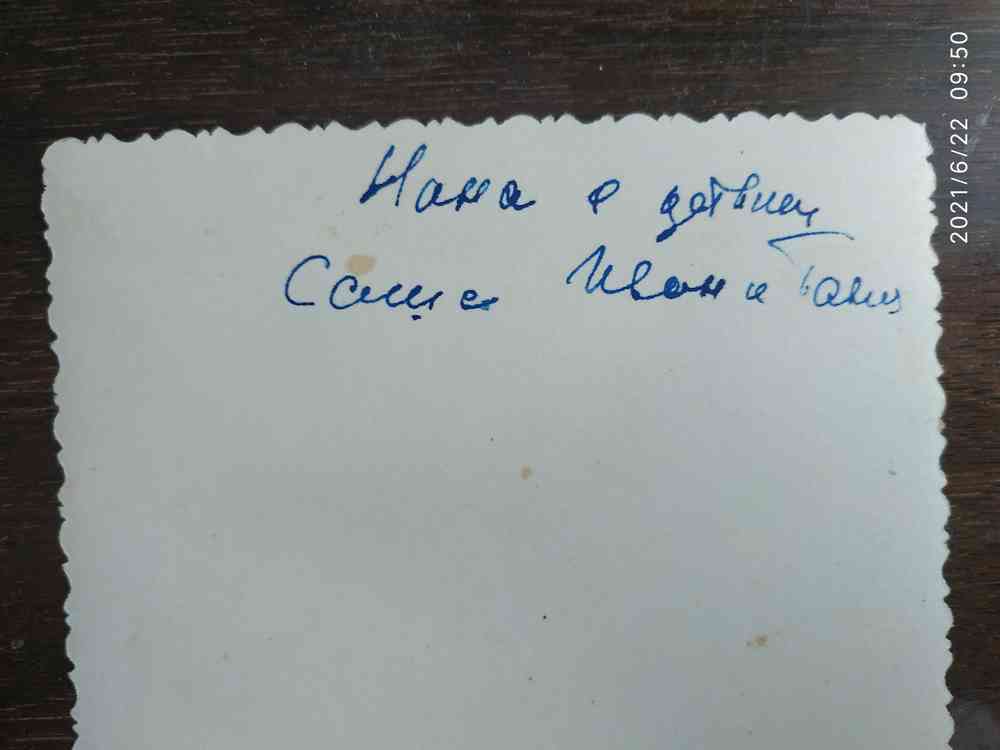 Нана с детьми
Саша Иван и Таня
2021/6/22 09:50